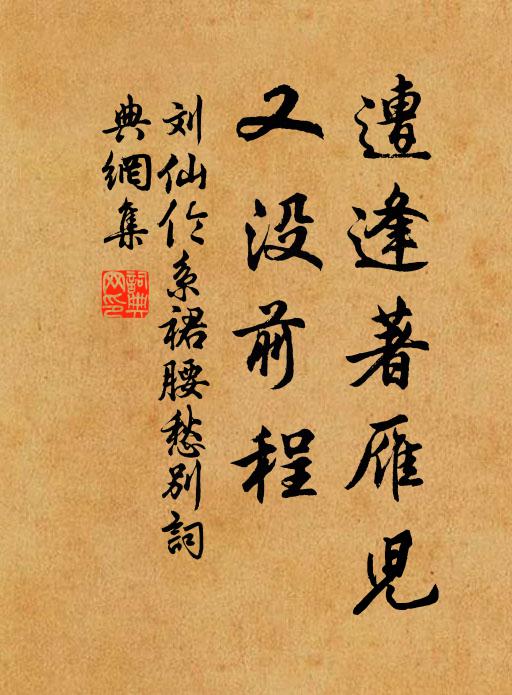 遭逢著雁兒
又没前程
刘仙伦系裙腰愁别詞
典網集
詞典
网印